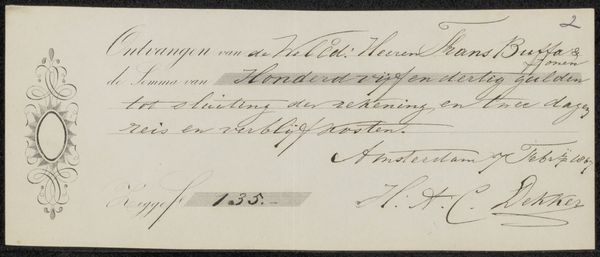 2
Ontvangen van de WelEd: Heeren Frans Buffa &
Zonen
de Somma van Honderd vijf en dertig gulden
tot sluiting der rekening, en twee dagen
reis en verblijf kosten.
Amsterdam 7 Febrij
Zegge f 135.-
H. A. C. Dekker